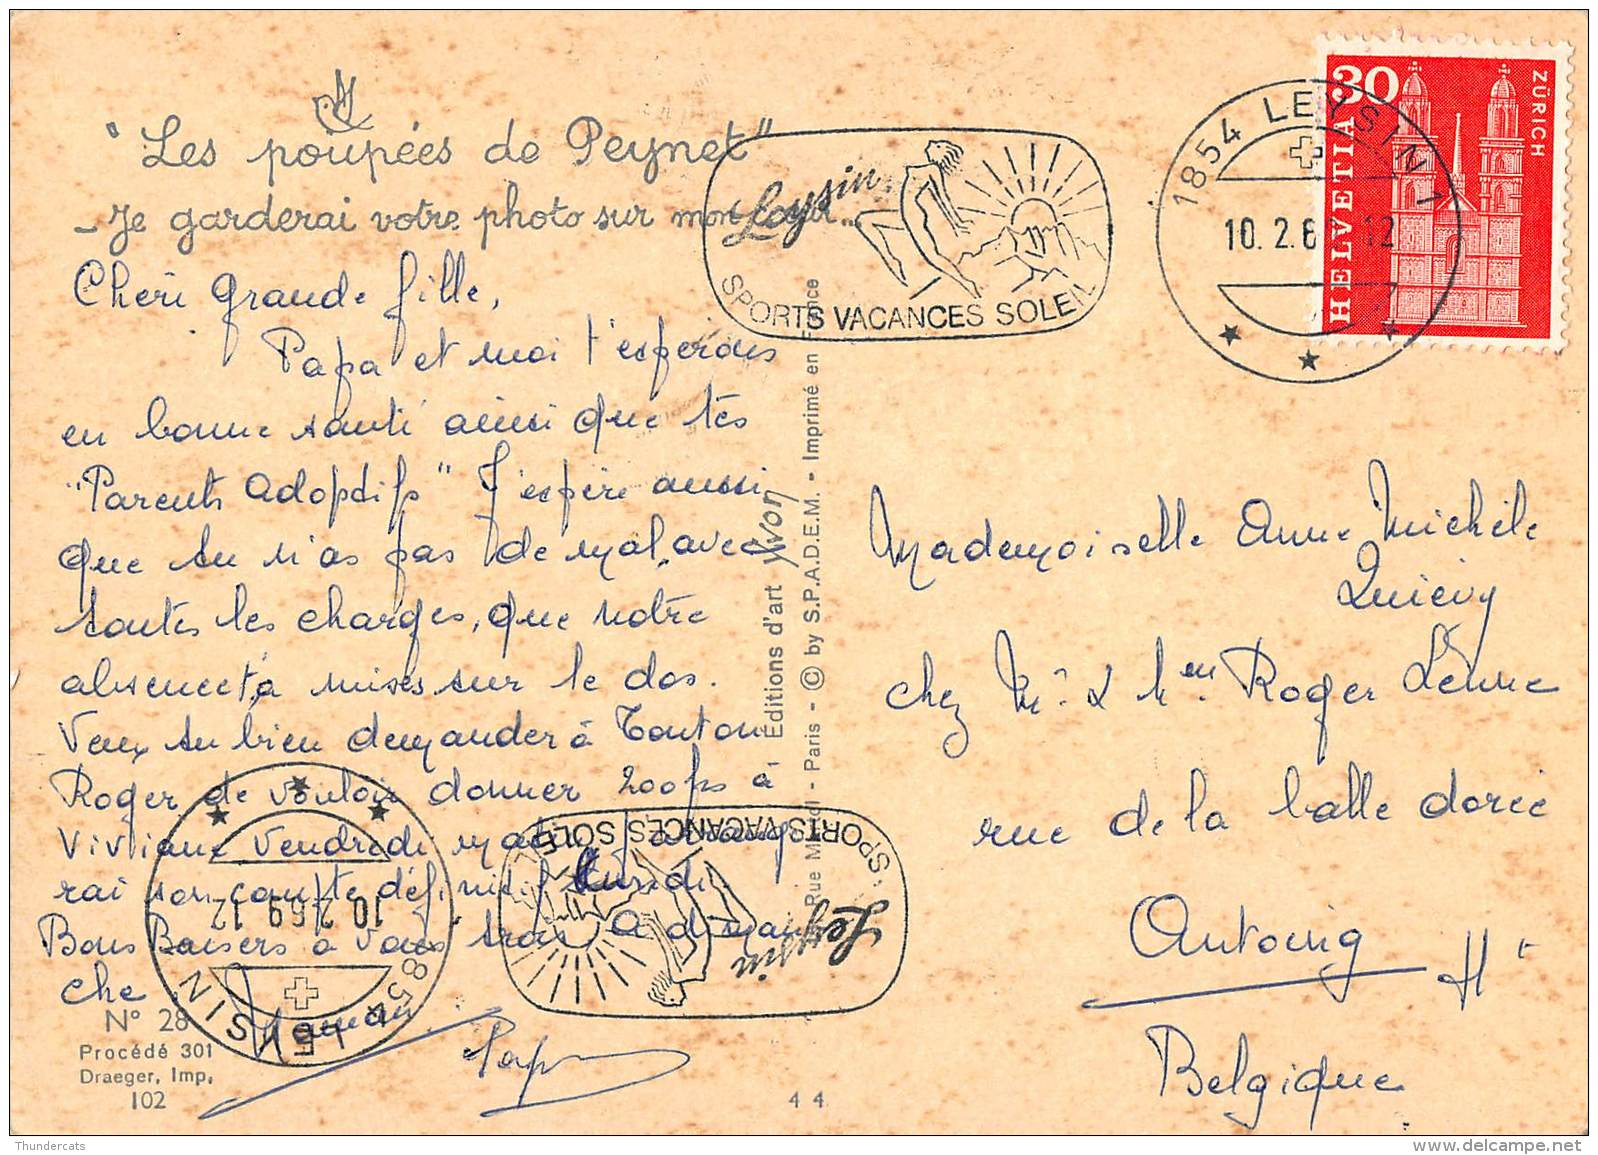 "Les poupées de Peynet"
- Je garderai votre photo sur mon cœur...
Cheri grande fille,
Papa et moi t'esperons
en bonne santé ainsi que tes
"Parents Adoptifs" J'espère aussi
que tu n'as pas de mal, avec
toutes les charges, que notre
absence t'a mises sur le dos.
Veux tu bien demander à Tonton
Roger de vouloir donner 200 frs à
Viviane Vendredi
rai son compte définitif Lundi
Bons Baisers à vous trois A diman
che.
Maman
Papa
N° 28
Procédé 301
Draeger, Imp.
102
44
Éditions d'art Yvon
Rue - Paris - © by S.P.A.D.E.M. - Imprimé en France
Leysin
SPORTS VACANCES SOLEIL
1854 LEYSIN 1
10. 2. 6 12
30
HELVETIA
ZÜRICH
Mademoiselle Anne Michèle
Quiévy
chez Mr & Mme Roger Lenne
rue de la balle dorée
Antoing Ht
Belgique
1854 LEYSIN
10. 2. 69. 12
Leysin
SPORTS VACANCES SOLEIL
Thundercats
www.delcampe.net